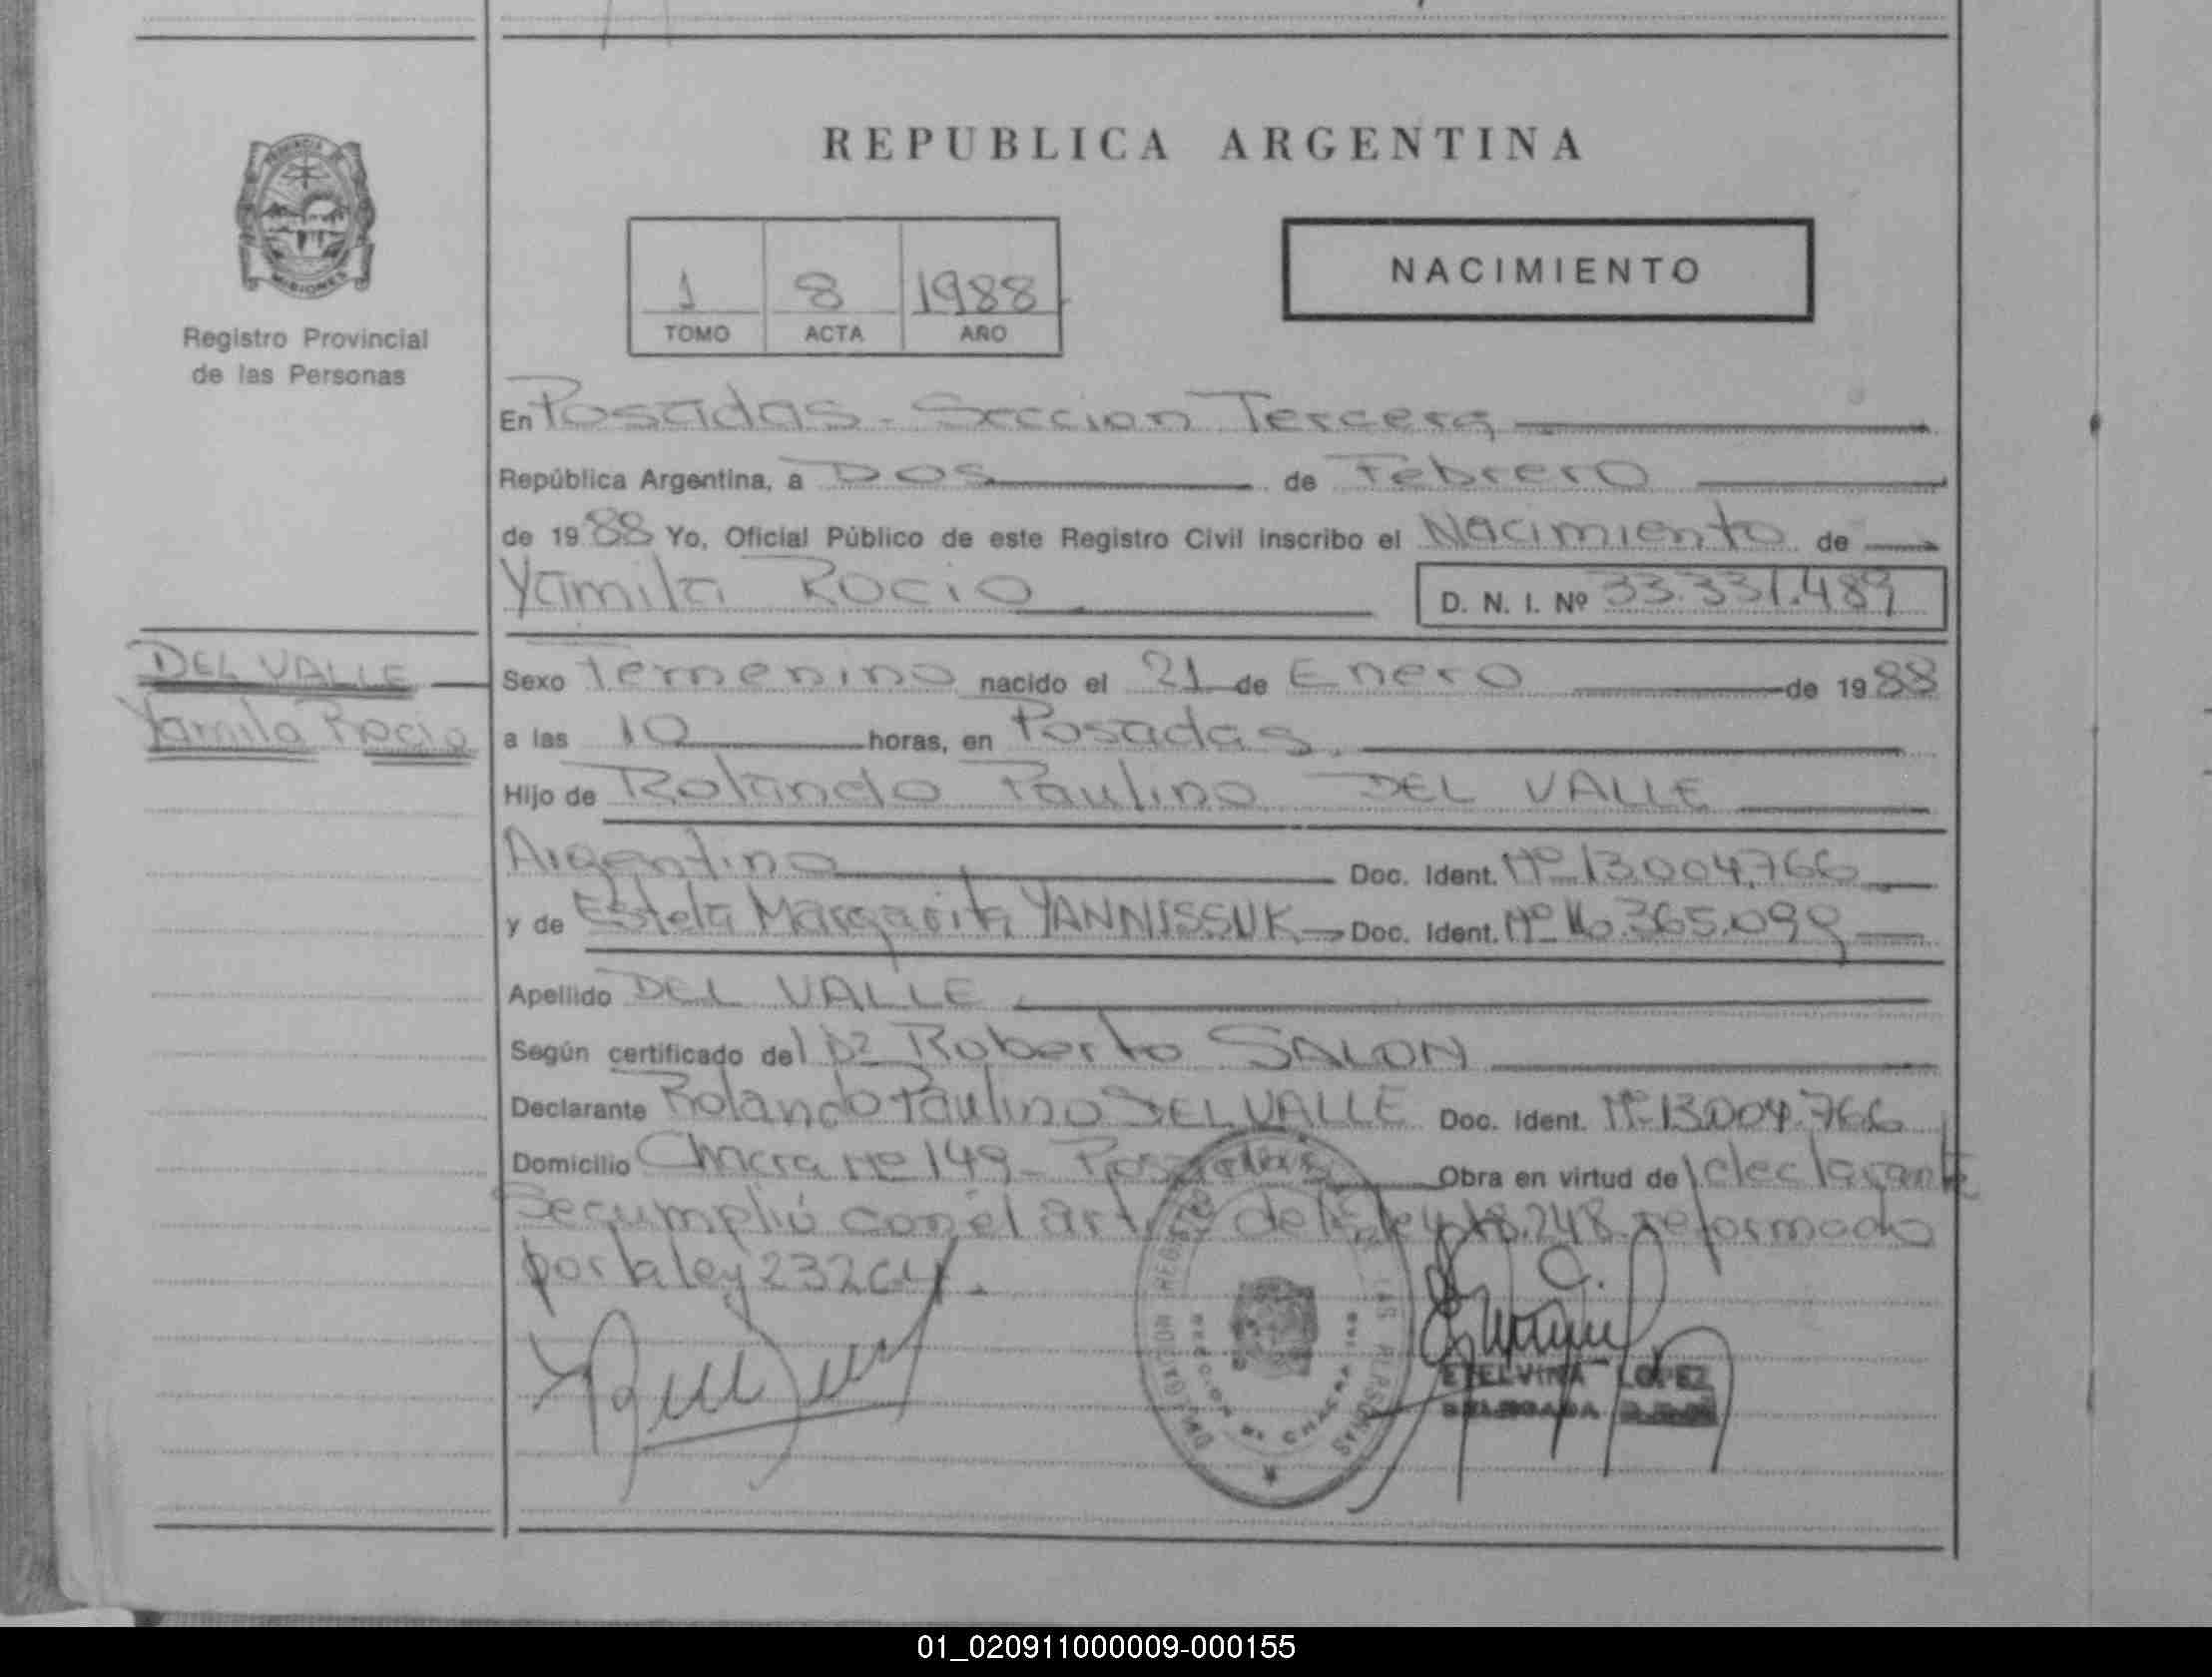 REPUBLICA ARGENTINA
PROVINCIA DE
MISIONES
Registro Provincial
de las Personas
1 8 1988
TOMO ACTA AÑO
NACIMIENTO
En Posadas - Seccion Tercera
República Argentina, a Dos de Febrero
de 1988 Yo, Oficial Público de este Registro Civil inscribo el Nacimiento de
Yamila Rocio D. N. I. Nº 33.331.489
DEL VALLE
Yamila Rocio
Sexo Femenino nacido el 21 de Enero de 1988
a las 10 horas, en Posadas.
Hijo de Rolando Paulino DEL VALLE
Argentino Doc. Ident. Nº 13.004.766
y de Estela Margarita YANNISSUK Doc. Ident. Nº 16.365.099
Apellido DEL VALLE
Según certificado del Dr Roberto SALON
Declarante Rolando Paulino DEL VALLE Doc. Ident. Nº 13.004.766
Domicilio Chacra Nº 149 - Posadas Obra en virtud de declarante
Se cumplió con el art. de la ley 18.248 reformado
por la ley 23264.
ETELVINA LOPEZ
DELEGADA
01_020911000009-000155